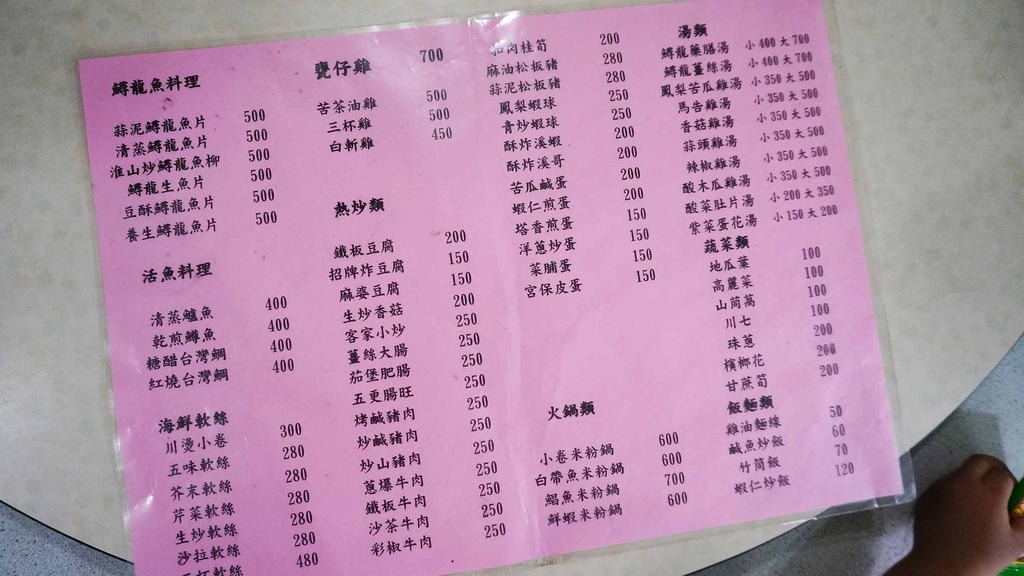 鱘龍魚料理
蒜泥鱘龍魚片 500
清蒸鱘龍魚片 500
淮山炒鱘龍魚柳 500
鱘龍生魚片 500
豆酥鱘龍魚片 500
養生鱘龍魚片 500
活魚料理
清蒸鱸魚 400
乾煎鱒魚 400
糖醋台灣鯛 400
紅燒台灣鯛 400
海鮮軟絲
川燙小卷 300
五味軟絲 280
芥末軟絲 280
芹菜軟絲 280
生炒軟絲 280
沙拉軟絲 280
三杯軟絲 480
甕仔雞 700
苦茶油雞 500
三杯雞 500
白斬雞 450
熱炒類
鐵板豆腐 200
招牌炸豆腐 150
麻婆豆腐 150
生炒香菇 200
客家小炒 250
薑絲大腸 250
茄堡肥腸 250
五更腸旺 250
烤鹹豬肉 250
炒鹹豬肉 250
炒山豬肉 250
蔥爆牛肉 250
鐵板牛肉 250
沙茶牛肉 250
彩椒牛肉 250
肉桂筍 200
麻油松板豬 280
蒜泥松板豬 280
鳳梨蝦球 250
青炒蝦球 250
酥炸溪蝦 200
酥炸溪哥 200
苦瓜鹹蛋 200
蝦仁煎蛋 200
塔香煎蛋 150
洋蔥炒蛋 150
菜脯蛋 150
宮保皮蛋 150
火鍋類
小卷米粉鍋 600
白帶魚米粉鍋 600
鯧魚米粉鍋 700
鮮蝦米粉鍋 600
湯類
鱘龍藥膳湯 小400大700
鱘龍薑絲湯 小400大700
鳳梨苦瓜雞湯 小350大500
馬告雞湯 小350大500
香菇雞湯 小350大500
蒜頭雞湯 小350大500
辣椒雞湯 小350大500
酸木瓜雞湯 小350大500
酸菜肚片湯 小200大350
紫菜蛋花湯 小150大200
蔬菜類
地瓜葉 100
高麗菜 100
山茼萵 100
川七 100
珠蔥 200
檳榔花 200
甘蔗筍 200
飯麵類
雞油麵線 50
鹹魚炒飯 60
竹筒飯 70
蝦仁炒飯 120